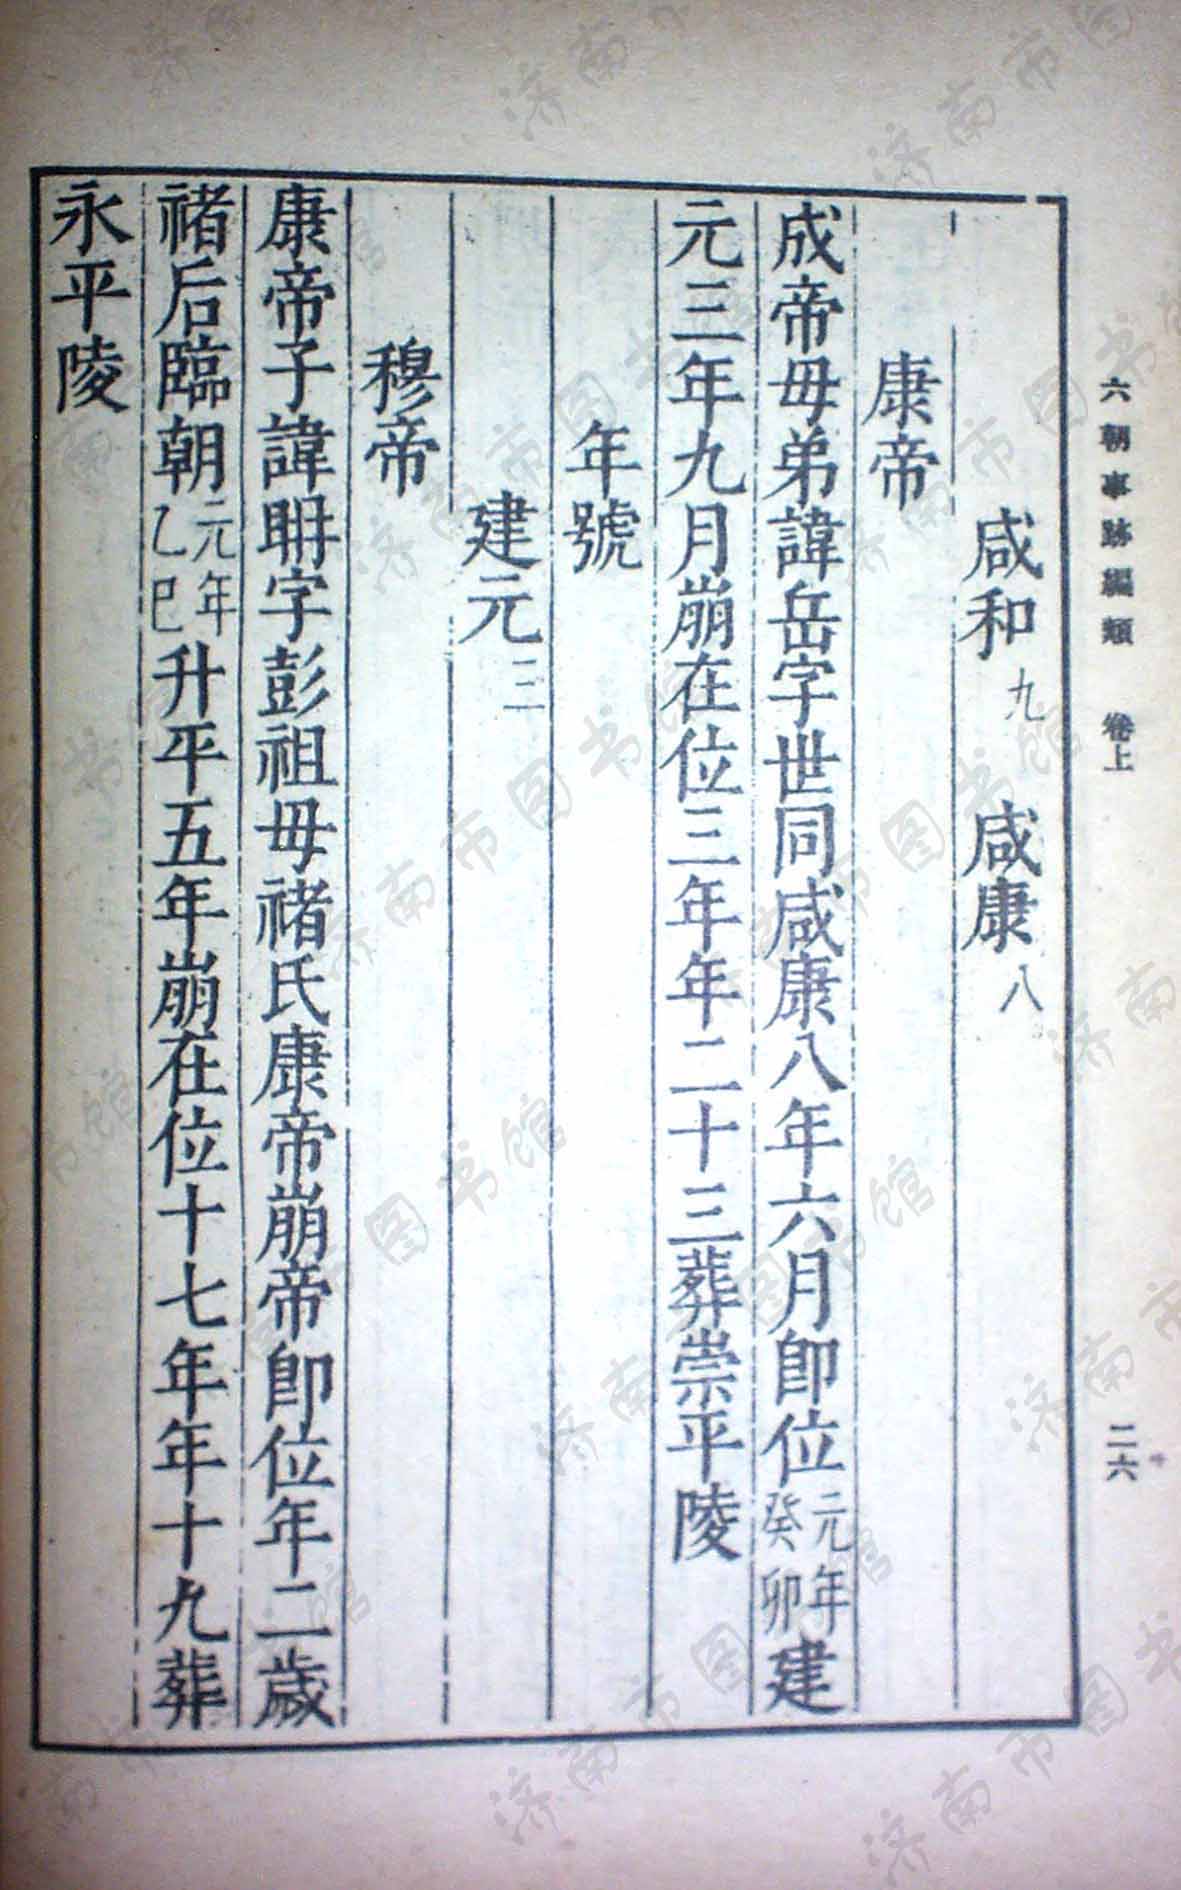 六朝事跡編類 卷上 二六
咸和九 咸康八
康帝
成帝母弟諱岳字世同咸康八年六月卽位元年癸卯建
元三年九月崩在位三年年二十三葬崇平陵
年號
建元二
穆帝
康帝子諱聃字彭祖母褚氏康帝崩帝卽位年二歲
褚后臨朝元年乙巳升平五年崩在位十七年年十九葬
永平陵
济南市图书馆